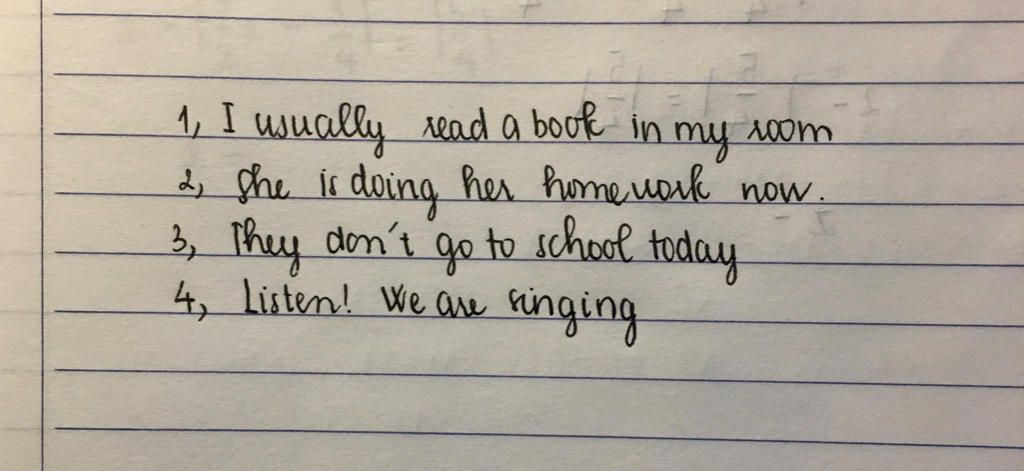 1, I usually read a book in my room
2, She is doing her homework now.
3, They don't go to school today
4, Listen! We are singing